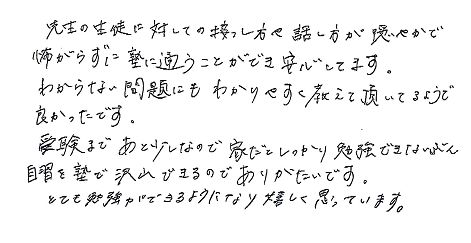 先生の生徒に対しての接し方や話し方が穏やかで
怖がらずに塾に通うことができ安心してます。
わからない問題にもわかりやすく教えて頂いてるようで
良かったです。
受験まであと少しなので家だとしっかり勉強できないぶん
自習を塾で沢山できるのでありがたいです。
とても勉強ができるようになり嬉しく思っています。